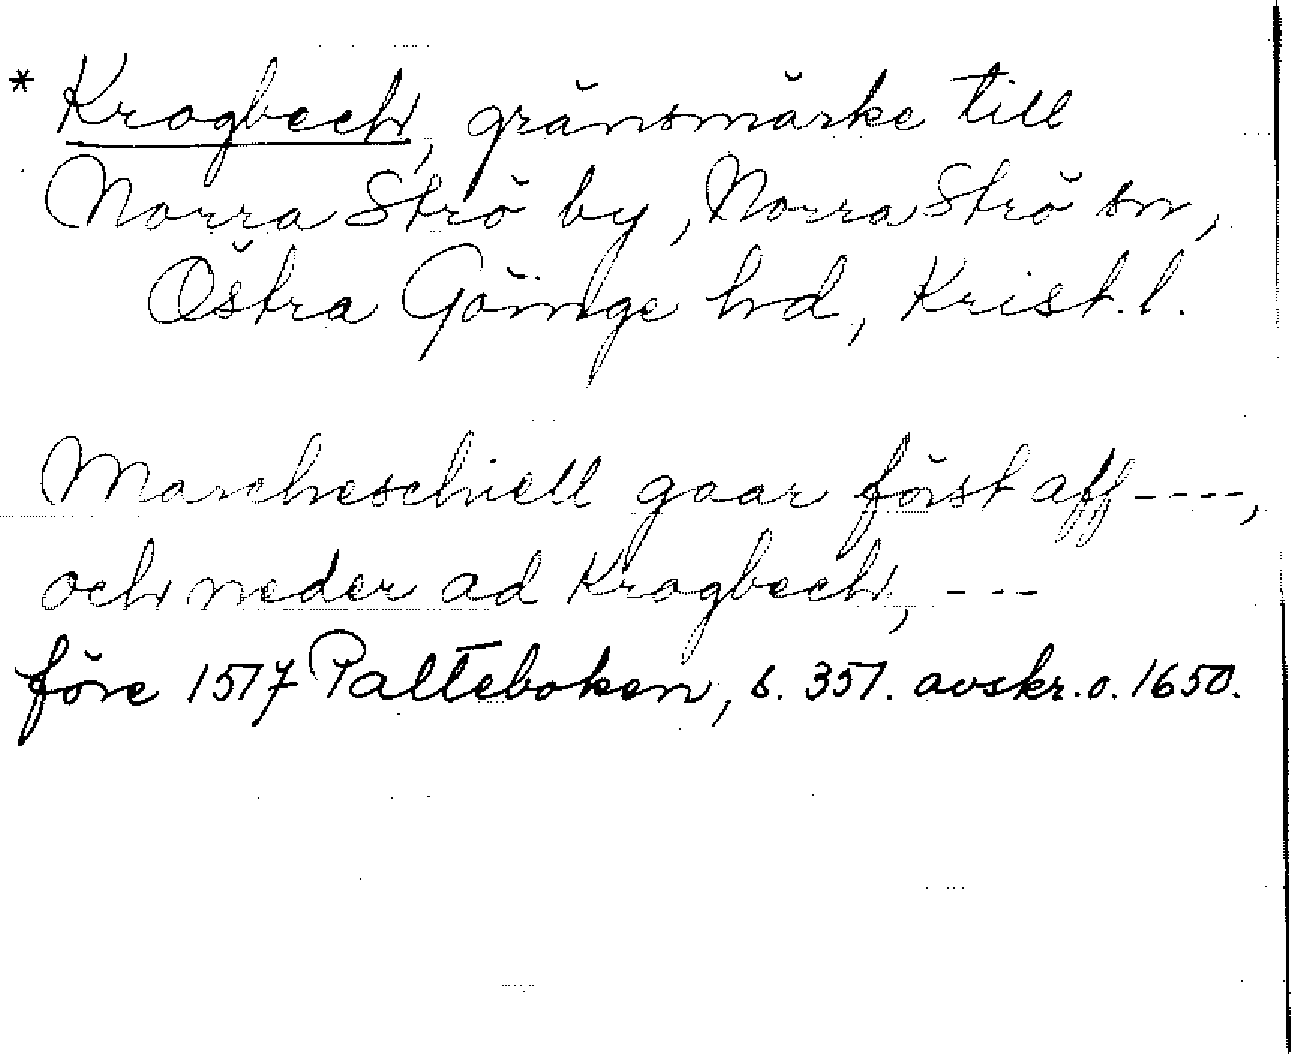 * Krogbech, gränsmärke till
Norra Strö by, Norra Strö sn,
Östra Göinge hd, Krist. l.
Marcheschiell gaar först aff ----,
och neder ad Krogbech, ---
före 1517 Palteboken, s. 351. avskr. o. 1650.